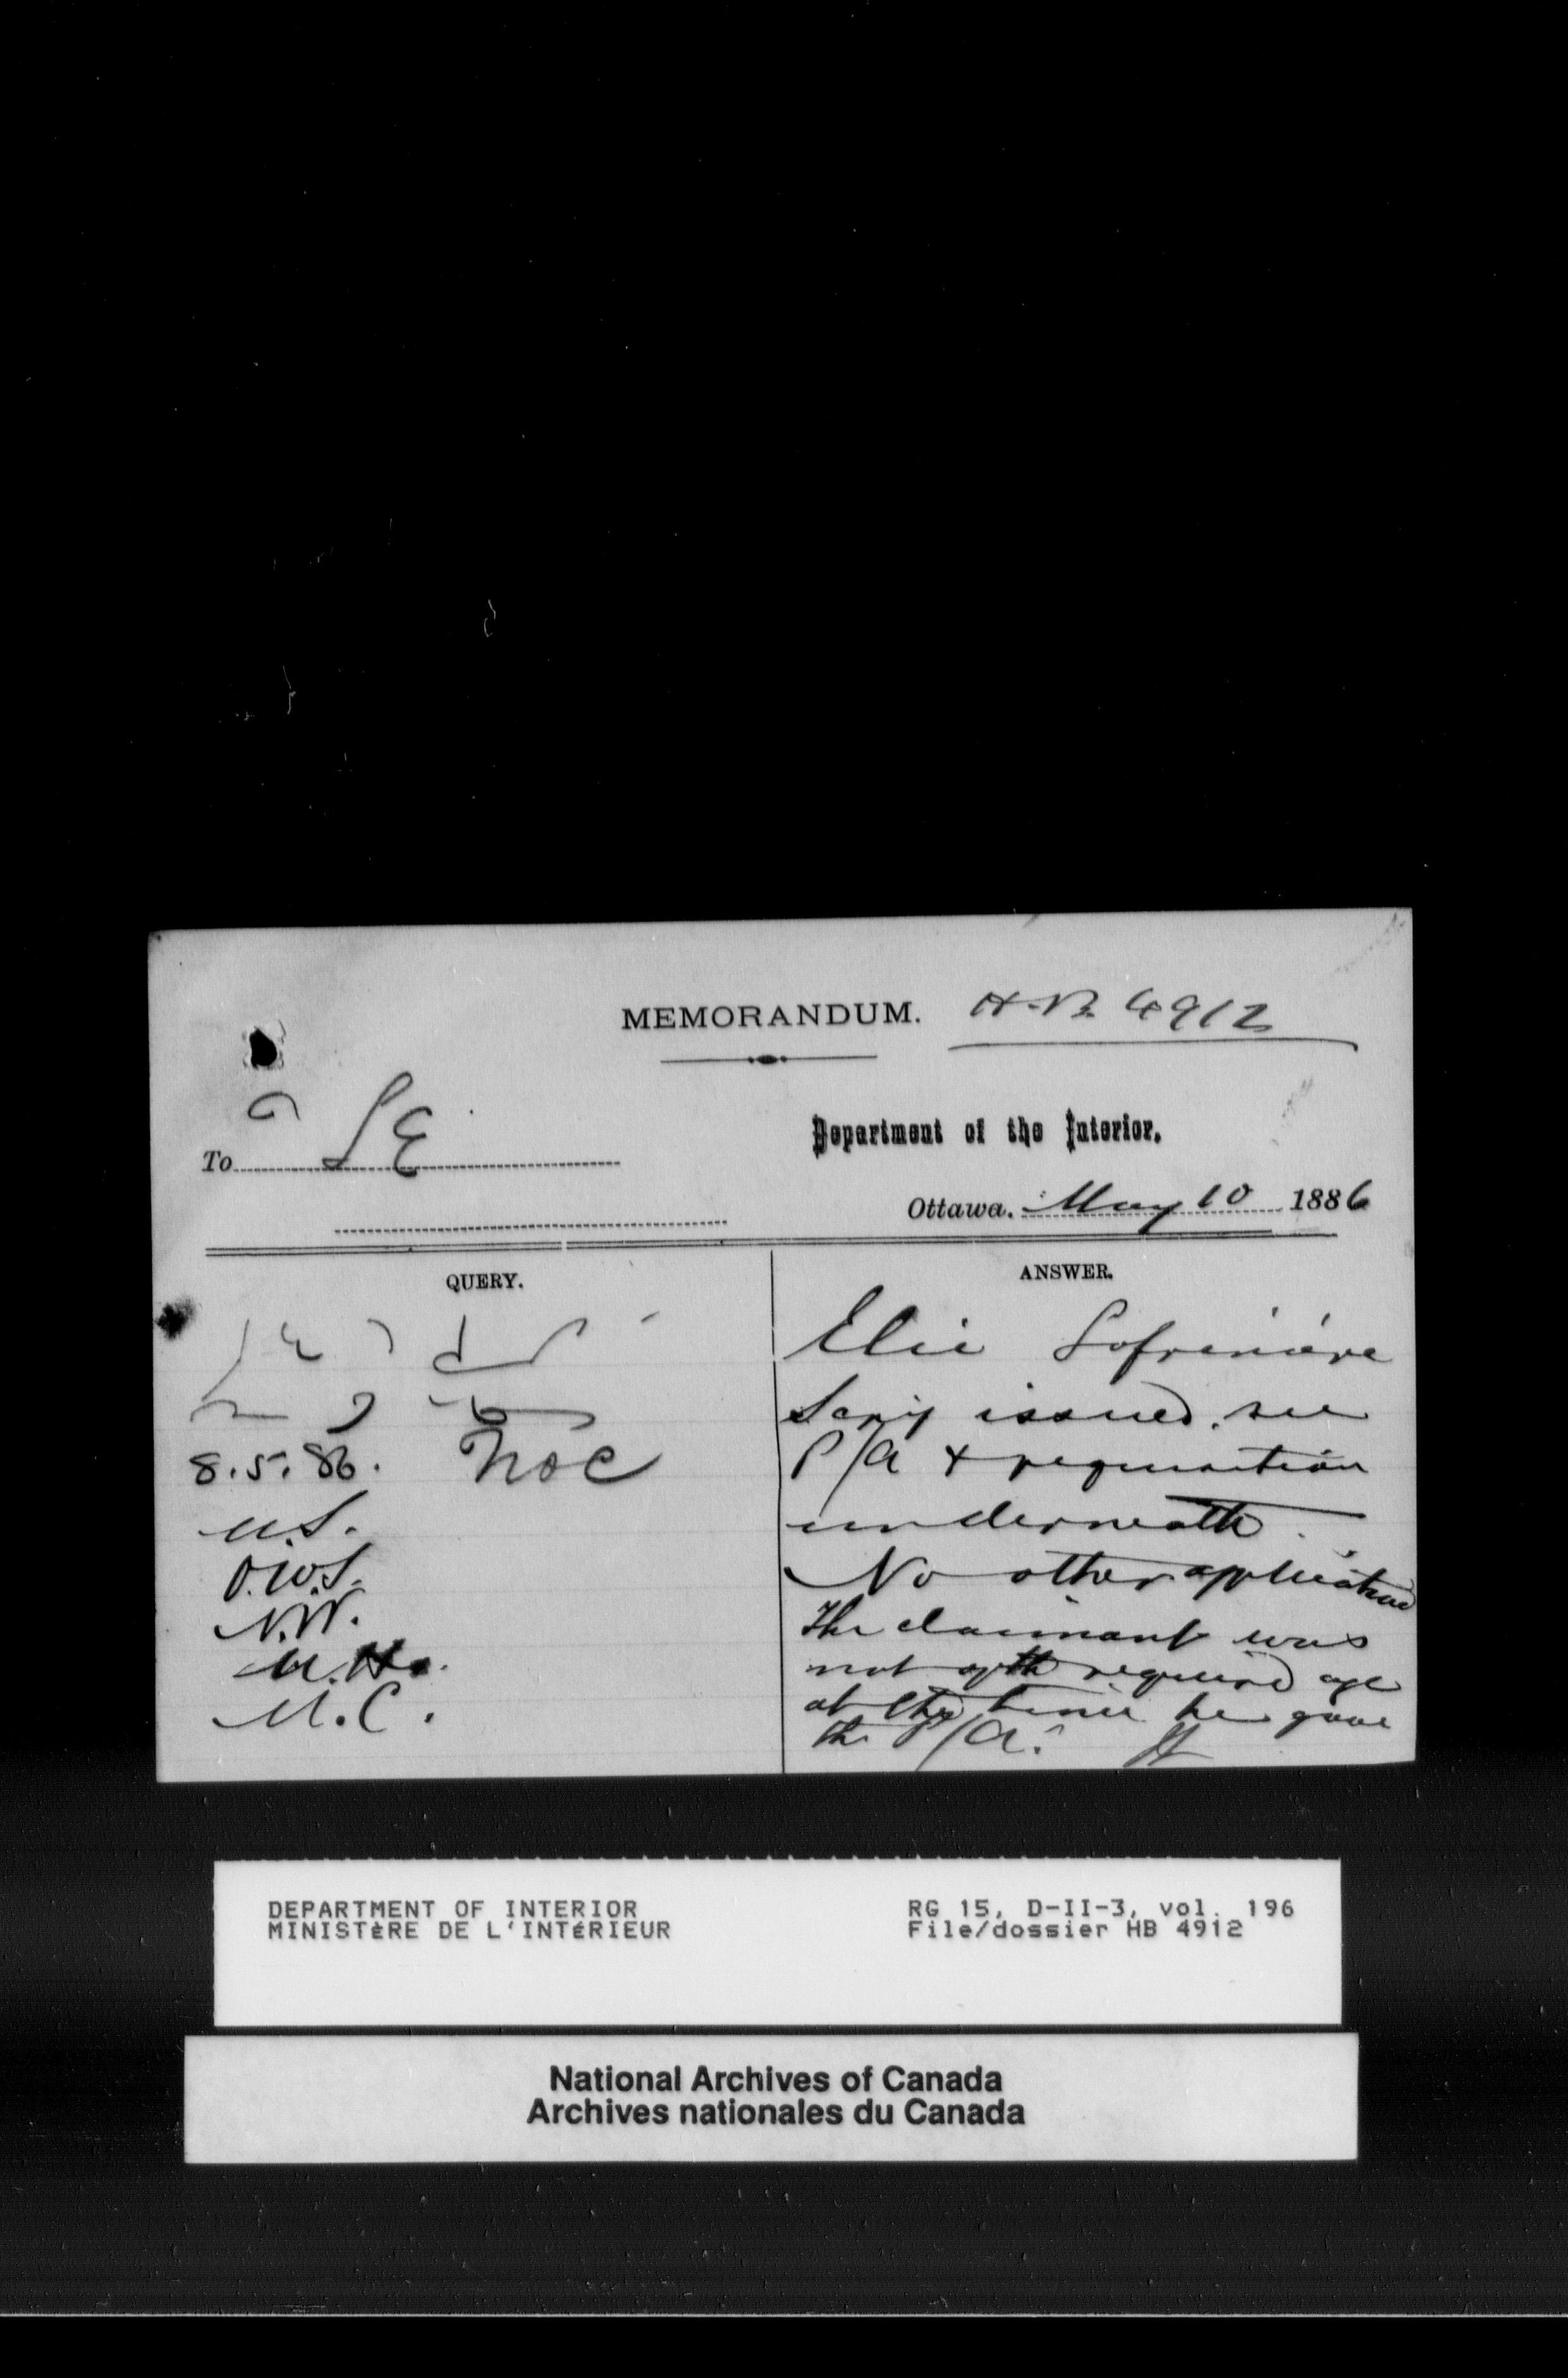 MEMORANDUM. H.B. 4912
To
Department of the Interior.
Ottawa. May 10 1886
QUERY.
8.5.86.
U.S.
O.W.S.
N.W.
M.C.
ANSWER.
Elie Lafrenière
Scrip issued, see
P/A & requisition
underneath.
No other application
The claimant was
not of the required age
at the time he gave
the P/A.
DEPARTMENT OF INTERIOR
MINISTÈRE DE L'INTÉRIEUR
RG 15, D-II-3, vol. 196
File/dossier HB 4912
National Archives of Canada
Archives nationales du Canada